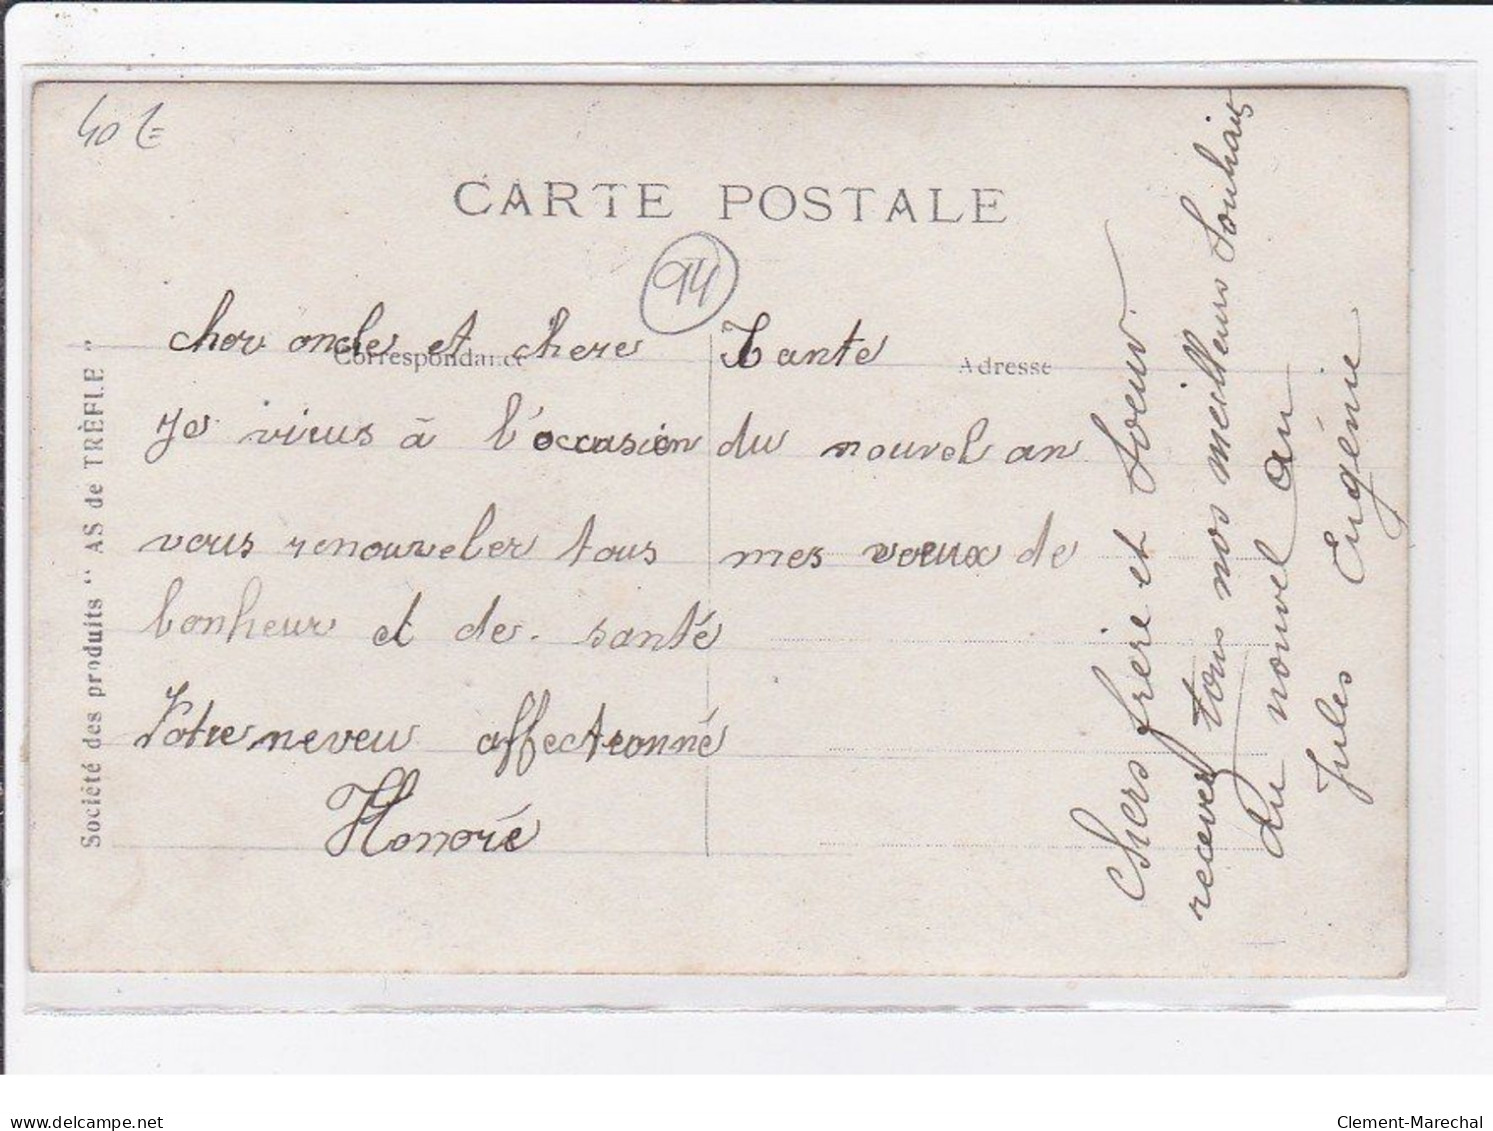 40 €
CARTE POSTALE
94
Correspondance
Adresse
cher oncle et chere Tante
Je viens à l'occasion du nouvel an
vous renouveler tous mes voeux de
bonheur et de santé
Votre neveu affectionné
Honoré
Chers frère et Soeur
recevez tous nos meilleurs Souhais
du nouvel an
Jules Eugénie
Société des produits " AS de TRÈFLE "
delcampe.net
Clement-Marechal